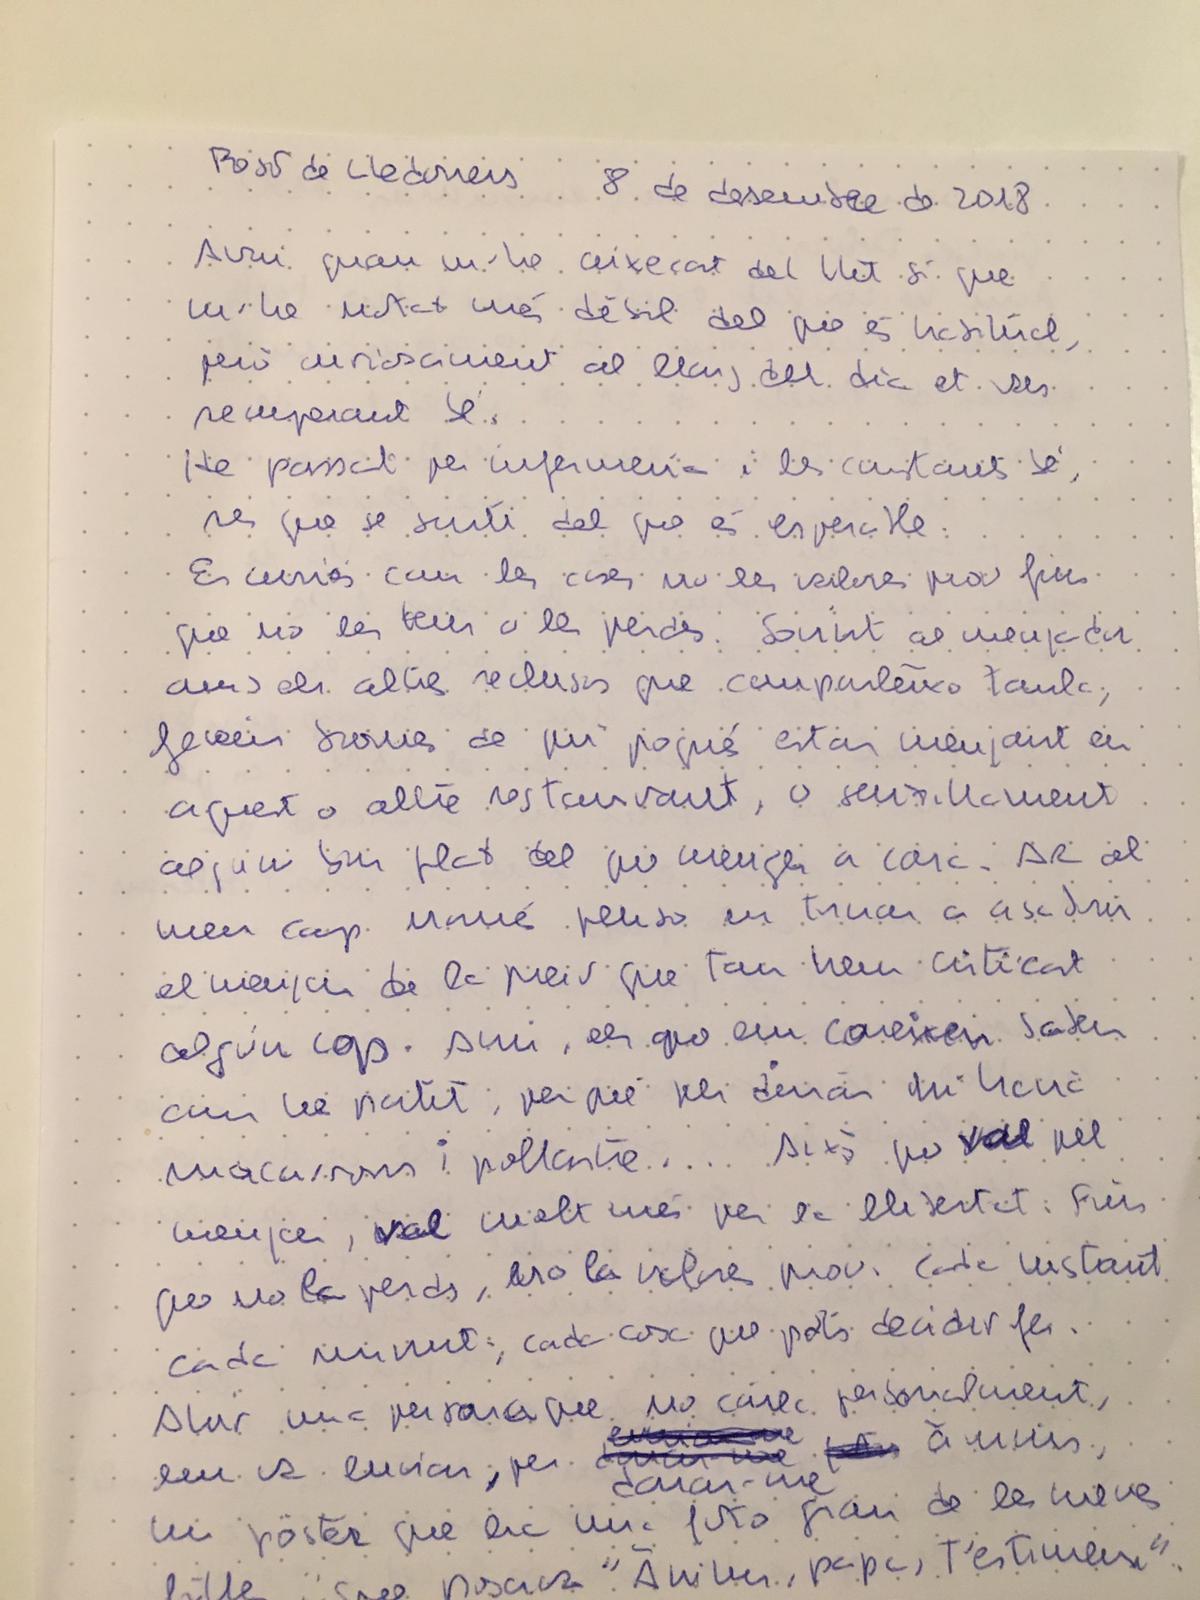 Presó de Lledoners 8 de desembre de 2018
Avui quan m'he aixecat del llit sí que
m'he notat més dèbil del que és habitual,
però curiosament al llarg del dia et vas
recuperant bé.
He passat per infermeria i les constants bé,
res que se surti del que és esperable.
És curiós com les coses no les valores prou fins
que no les tens o les perds. Sovint al menjador
amb els altres reclusos que comparteixo taula,
fem bromes de qui pogués estar menjant en
aquest o altre restaurant, o senzillament
algun bon plat del que menja a casa. Ara al
meu cap només penso en tornar a assaborir
el menjar de la presó que tan hem criticat
algún cop. Avui, els que em coneixen saben
com he patit, perquè per dinar hi havia
macarrons i pollastre.... Això que val pel
menjar, val molt més per la llibertat. Fins
que no la perds, no la valores prou. Cada instant
cada minut, cada cosa que pots decidir fer.
Ahir una persona que no conec personalment,
em va enviar, per donar-me ànims,
un pòster que era una foto gran de les meves
filles i que posava "Ànims, papa, t'estimem".